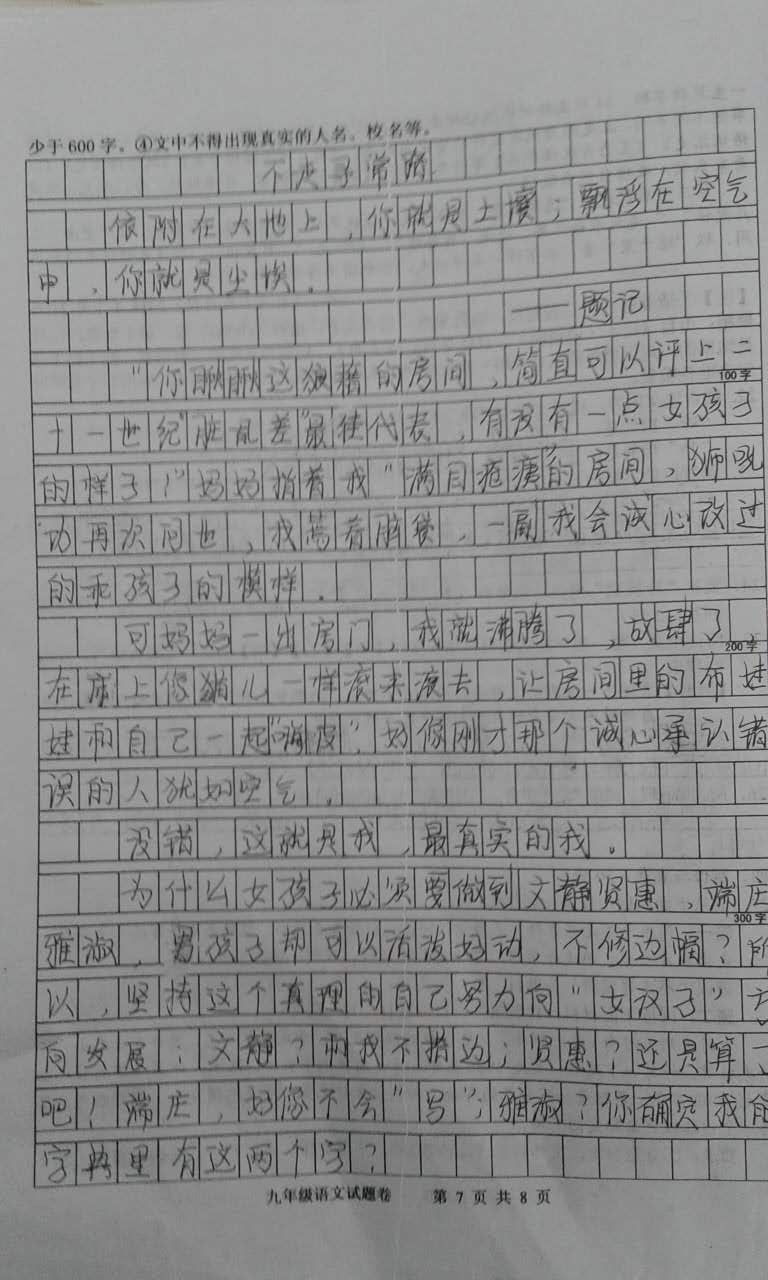 少于600字。④文中不得出现真实的人名、校名等。
不走寻常路
依附在大地上，你就是土壤；飘浮在空气
中，你就是尘埃。
——题记
"你瞅瞅这狼藉的房间，简直可以评上二
100字
十一世纪"脏乱差"最佳代表，有没有一点女孩子
的样子！"妈妈指着我"满目疮痍"的房间，狮吼
功再次问世，我耷着脑袋，一副我会诚心改过
的乖孩子的模样。
可妈妈一出房门，我就沸腾了，放肆了，
200字
在床上像猫儿一样滚来滚去，让房间里的布娃
娃和自己一起"嗨皮"。好像刚才那个诚心承认错
误的人犹如空气。
没错，这就是我，最真实的我。
为什么女孩子必须要做到文静贤惠，端庄
300字
雅淑，男孩子却可以活泼好动，不修边幅？所
以，坚持这个真理的自己努力向"女汉子"方
向发展：文静？和我不搭边；贤惠？还是算了
吧！端庄，好像不会"写"；雅淑？你确定我的
字典里有这两个字？
九年级语文试题卷 第7页共8页